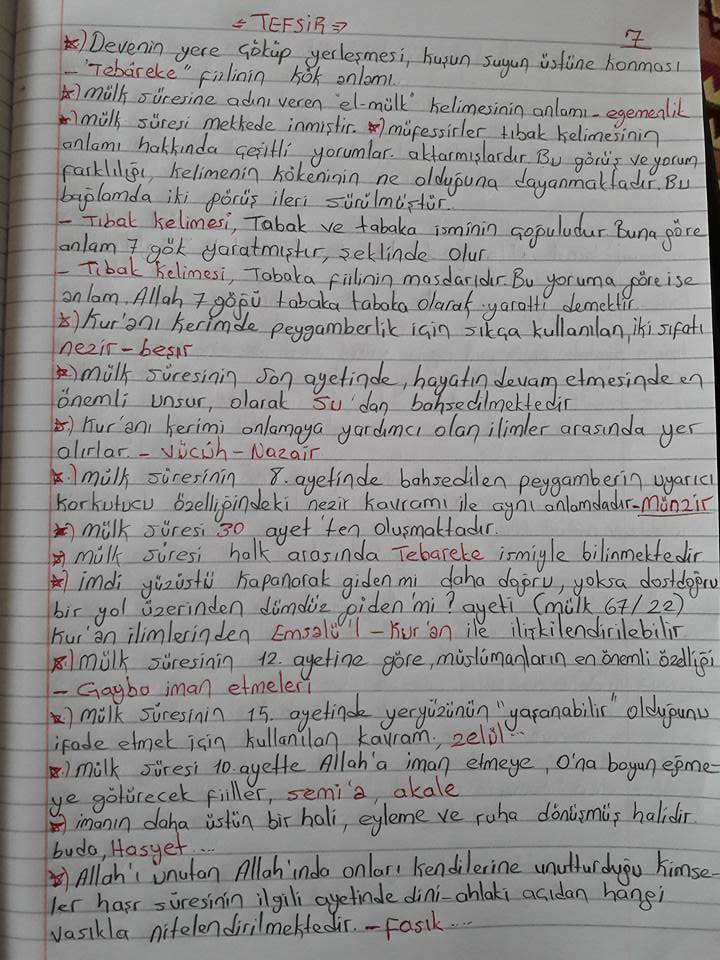 ⇐ TEFSİR ⇒
7
*) Devenin yere çöküp yerleşmesi, kuşun suyun üstüne konması
- "Tebâreke" fiilinin kök anlamı
*) mülk sûresine adını veren "el-mülk" kelimesinin anlamı - egemenlik
*) mülk sûresi mekkede inmiştir. *) müfessirler tıbak kelimesinin
anlamı hakkında çeşitli yorumlar aktarmışlardır. Bu görüş ve yorum
farklılığı, kelimenin kökeninin ne olduğuna dayanmaktadır. Bu
bağlamda iki görüş ileri sürülmüştür.
- Tıbak kelimesi, Tabak ve tabaka isminin çoğuludur. Buna göre
anlam 7 gök yaratmıştır, şeklinde olur
- Tıbak kelimesi, Tabaka fiilinin masdarıdır. Bu yoruma göre ise
anlam, Allah 7 göğü tabaka tabaka olarak yarattı demektir
*) Kur'anı kerimde peygamberlik için sıkça kullanılan, iki sıfatı
nezir - beşir
*) mülk sûresinin son ayetinde, hayatın devam etmesinde en
önemli unsur, olarak su'dan bahsedilmektedir
*) Kur'anı kerimi anlamaya yardımcı olan ilimler arasında yer
alırlar. - Vücûh - Nazair
*) mülk sûresinin 8. ayetinde bahsedilen peygamberin uyarıcı
korkutucu özelliğindeki nezir kavramı ile aynı anlamdadır - Münzir
*) mülk sûresi 30 ayet'ten oluşmaktadır.
*) mülk sûresi halk arasında Tebareke ismiyle bilinmektedir
*) imdi yüzüstü kapanarak giden mi daha doğru, yoksa dostdoğru
bir yol üzerinden dümdüz giden'mi? ayeti (mülk 67/22)
Kur'an ilimlerinden Emsalü'l - Kur'an ile ilişkilendirilebilir
*) mülk sûresinin 12. ayetine göre, müslümanların en önemli özelliği
- Gayba iman etmeleri
*) mülk sûresinin 15. ayetinde yeryüzünün "yaşanabilir" olduğunu
ifade etmek için kullanılan kavram, zelül...
*) mülk sûresi 10. ayette Allah'a iman etmeye, O'na boyun eğme-
ye götürecek fiiller, semi'a, akale
*) imanın daha üstün bir hali, eyleme ve ruha dönüşmüş halidir
buda, Haşyet...
*) Allah'ı unutan Allah'ında onları kendilerine unutturduğu kimse-
ler haşr sûresinin ilgili ayetinde dini-ahlaki açıdan hangi
vasıkla nitelendirilmektedir. - fasık...